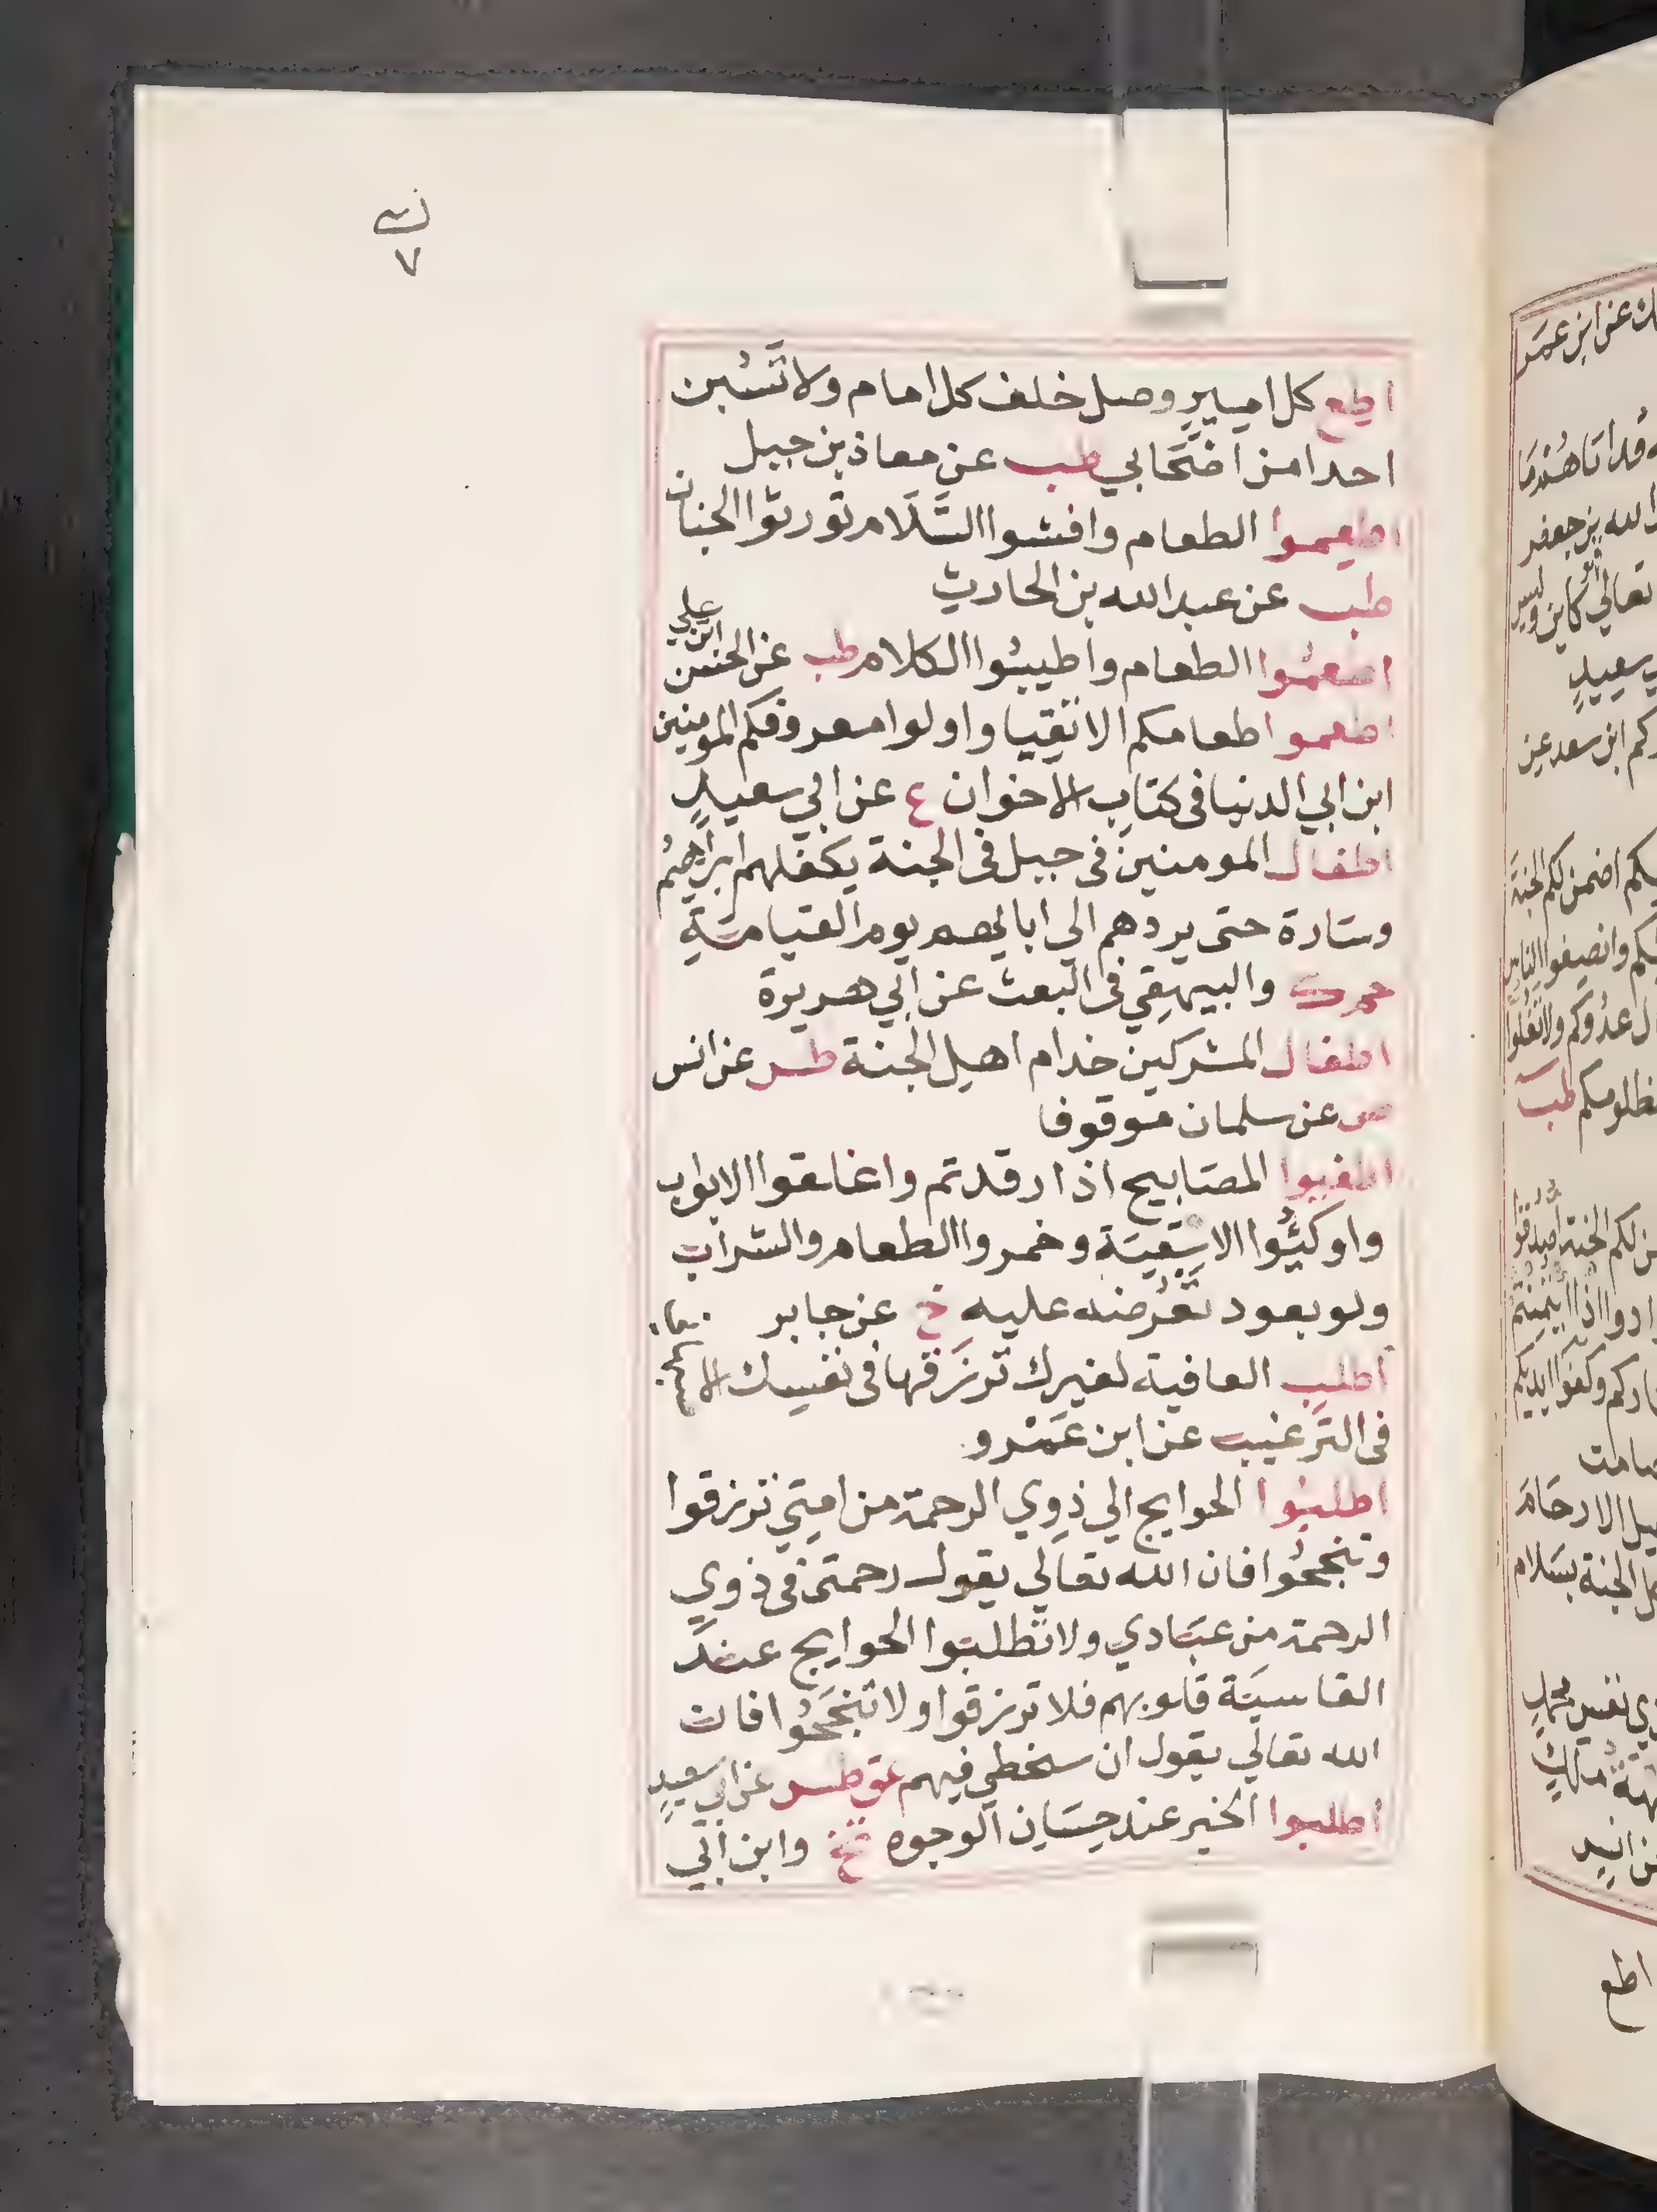 ٧
اطع كل امير وصل خلف كل امام ولا تسبن
احدا من اصحابي طب عن معاذ بن جبل
اطعموا الطعام وافشوا السلام تورثوا الجنان
طب عن عبد الله بن الحارث
اطعموا الطعام واطيبوا الكلام طب عن الحسن ابن علي
اطعموا طعامكم الاتقيا واولوا معروفكم المومنين
ابن ابي الدنيا في كتاب الاخوان ع عن ابي سعيد
اطفال المومنين في جبل في الجنة يكفلهم ابراهيم
وسارة حتى يردهم الي ابايهم يوم القيامة
حم ك والبيهقي في البعث عن ابي هريرة
اطفال المشركين خدام اهل الجنة طس عن انس
ص عن سلمان موقوفا
اطفيوا المصابيح اذا رقدتم واغلقوا الابواب
واوكئوا الاسقية وخمروا الطعام والشراب
ولو بعود تعرضه عليه خ عن جابر
اطلب العافية لغيرك ترزقها في نفسك
في الترغيب عن ابن عمرو
اطلبوا الحوايج الي ذوي الرحمة من امتي ترزقوا
وتنجحوا فان الله تعالي يقول رحمتى في ذوي
الرحمة من عبادي ولا تطلبوا الحوايج عند
القاسية قلوبهم فلا ترزقوا ولا تنجحوا فان
الله تعالي يقول ان سخطي فيهم عق طس عن ابي سعيد
اطلبوا الخير عند حسان الوجوه تخ وابن ابي